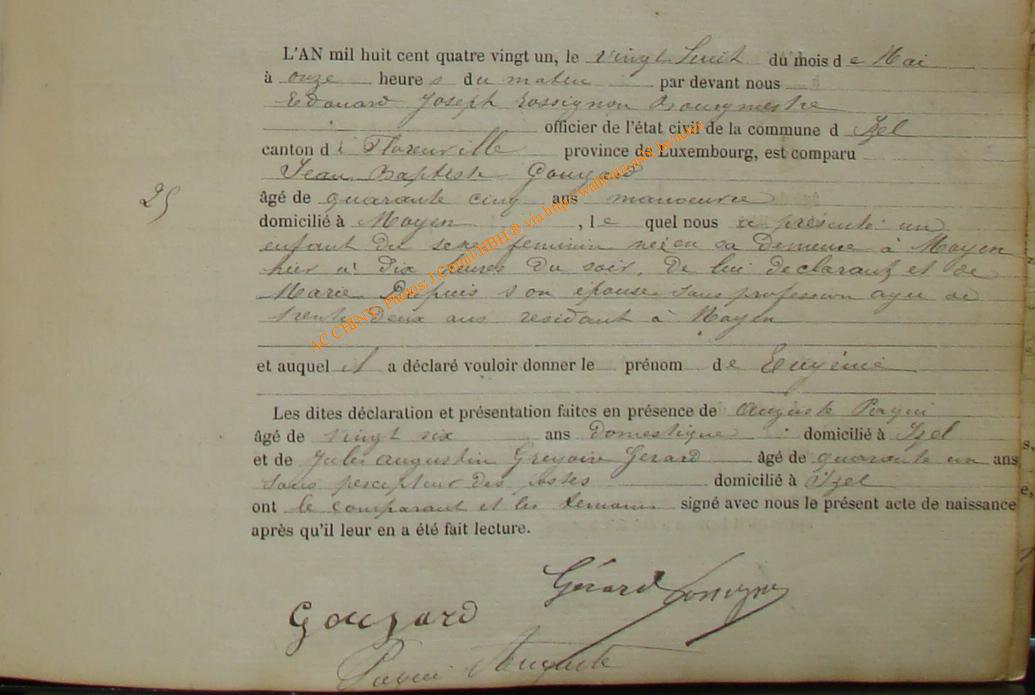 L'AN mil huit cent quatre vingt un, le vingt huit du mois de Mai
à onze heures du matin par devant nous
Edouard Joseph Rossignon Bourgmestre
officier de l'état civil de la commune d Izel
canton de Florenville province de Luxembourg, est comparu
Jean Baptiste Gouzard
25
âgé de quarante cinq ans manoeuvre
domicilié à Moyen, le quel nous a présenté un
enfant du sexe féminin né en sa demeure à Moyen
hier à dix heures du soir, de lui déclarant et de
Marie Dupuis son épouse sans profession agée de
trente deux ans residant à Moyen
et auquel il a déclaré vouloir donner le prénom de Eugénie
Les dites déclaration et présentation faites en présence de Auguste Paqui
âgé de vingt six ans domestique domicilié à Izel
et de Jules Augustin Gregoire Gerard âgé de quarante un ans
sous percepteur des postes domicilié à Izel
ont le comparant et les temoins signé avec nous le présent acte de naissance
après qu'il leur en a été fait lecture.
Gérard
Gouzard
Auguste
AC CHINY, Photos J Cornil HBH © via http://